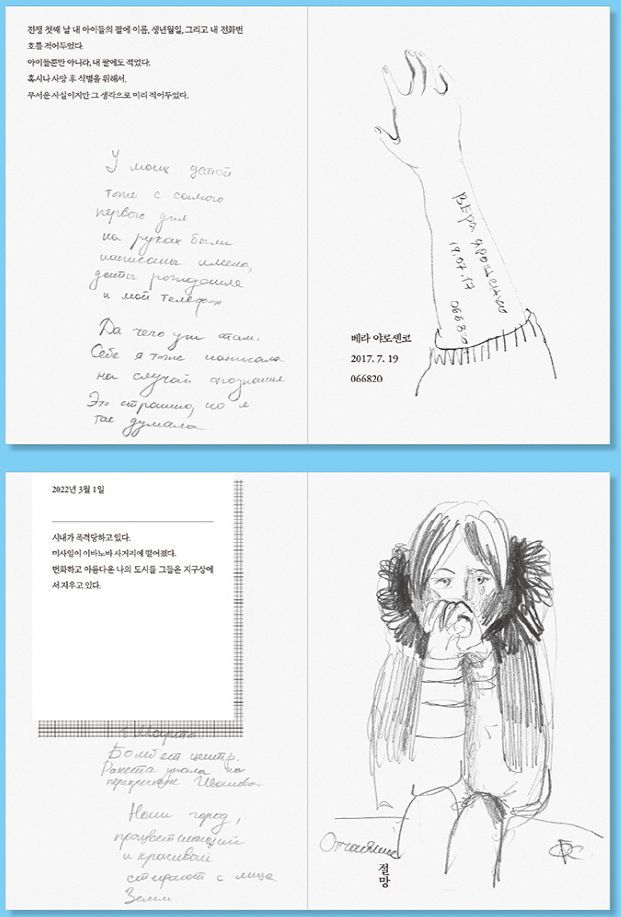 전쟁 첫째 날 내 아이들의 팔에 이름, 생년월일, 그리고 내 전화번
호를 적어두었다.
아이들뿐만 아니라, 내 팔에도 적었다.
혹시나 사망 후 식별을 위해서.
무서운 사실이지만 그 생각으로 미리 적어두었다.
У моих детей
тоже с самого
первого дня
на руках были
написаны имена,
даты рождения
и мой телефон
Да чего уж там.
Себе я тоже написала
на случай опознания
Это страшно, но я
так думала
ВЕРА ЯРОШЕНКО
19.07.17
066820
베라 야로셴코
2017. 7. 19
066820
2022년 3월 1일
시내가 폭격당하고 있다.
미사일이 이바노바 사거리에 떨어졌다.
번화하고 아름다운 나의 도시를 그들은 지구상에
서 지우고 있다.
1 Марта
Бомбят центр.
Ракета упала на
перекрёсток Иванова
Наш город,
процветающий
и красивый
стирают с лица
Земли.
Отчаяние
절망